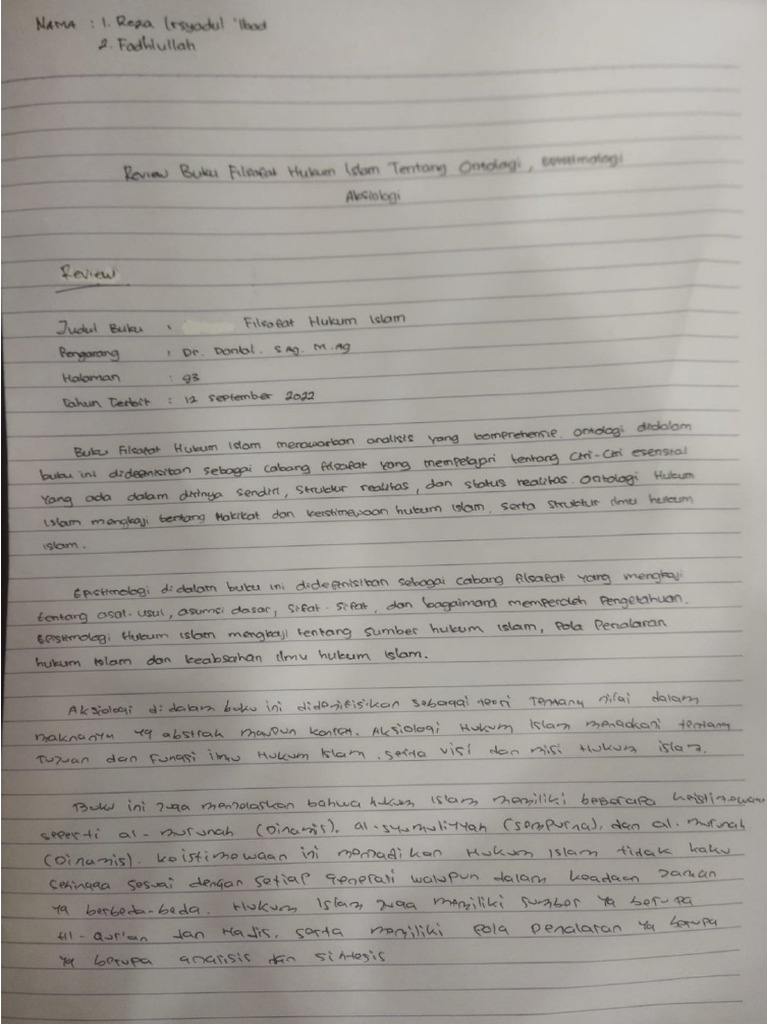 NAMA : 1. Reza Irsyadul 'Ibad
2. Fadhlullah
Review Buku Filsafat Hukum Islam Tentang Ontologi, Epistimologi
Aksiologi
Review
Judul Buku : Filsafat Hukum Islam
Pengarang : Dr. Danial. S Ag. M. Ag
Halaman : 93
Tahun Terbit : 12 September 2022
Buku Filsafat Hukum Islam menawarkan analisis yang komprehensif. Ontologi didalam
buku ini didefinisikan sebagai cabang filsafat yang mempelajri tentang Ciri-Ciri esensial
Yang ada dalam dirinya sendiri, struktur realitas, dan status realitas. Ontologi Hukum
Islam mengkaji tentang Hakikat dan keistimewaan hukum Islam, serta struktur ilmu hukum
islam.
Epistimologi didalam buku ini didefinisikan sebagai cabang filsafat yang mengkaji
tentang asal-usul, asumsi dasar, sifat-sifat, dan bagaimana memperoleh Pengetahuan.
Epistimologi Hukum Islam mengkaji tentang sumber hukum Islam, Pola Penalaran
hukum Islam dan keabsahan ilmu hukum Islam.
Aksiologi didalam buku ini didenifisikan sebagai teori Tentang nilai dalam
maknanya yg abstrak maupun konkret. Aksiologi Hukum Islam tentang
Tujuan dan Fungsi ilmu Hukum Islam, serta visi dan misi Hukum islam.
Buku ini juga menjelaskan bahwa hukum Islam memiliki beberapa keistimewaan
seperti al-murunah (Dinamis), al-syumuliyyah (sempurna), dan al-murunah
(Dinamis). keistimewaan ini menjadikan Hukum Islam tidak kaku
sehingga sesuai dengan setiap generasi walupun dalam keadaan zaman
yg berbeda-beda. Hukum Islam juga memiliki sumber yg berupa
Al-Qur'an dan Hadis. serta memiliki Pola Penalaran yg berupa
yg berupa analisis dan sintesis